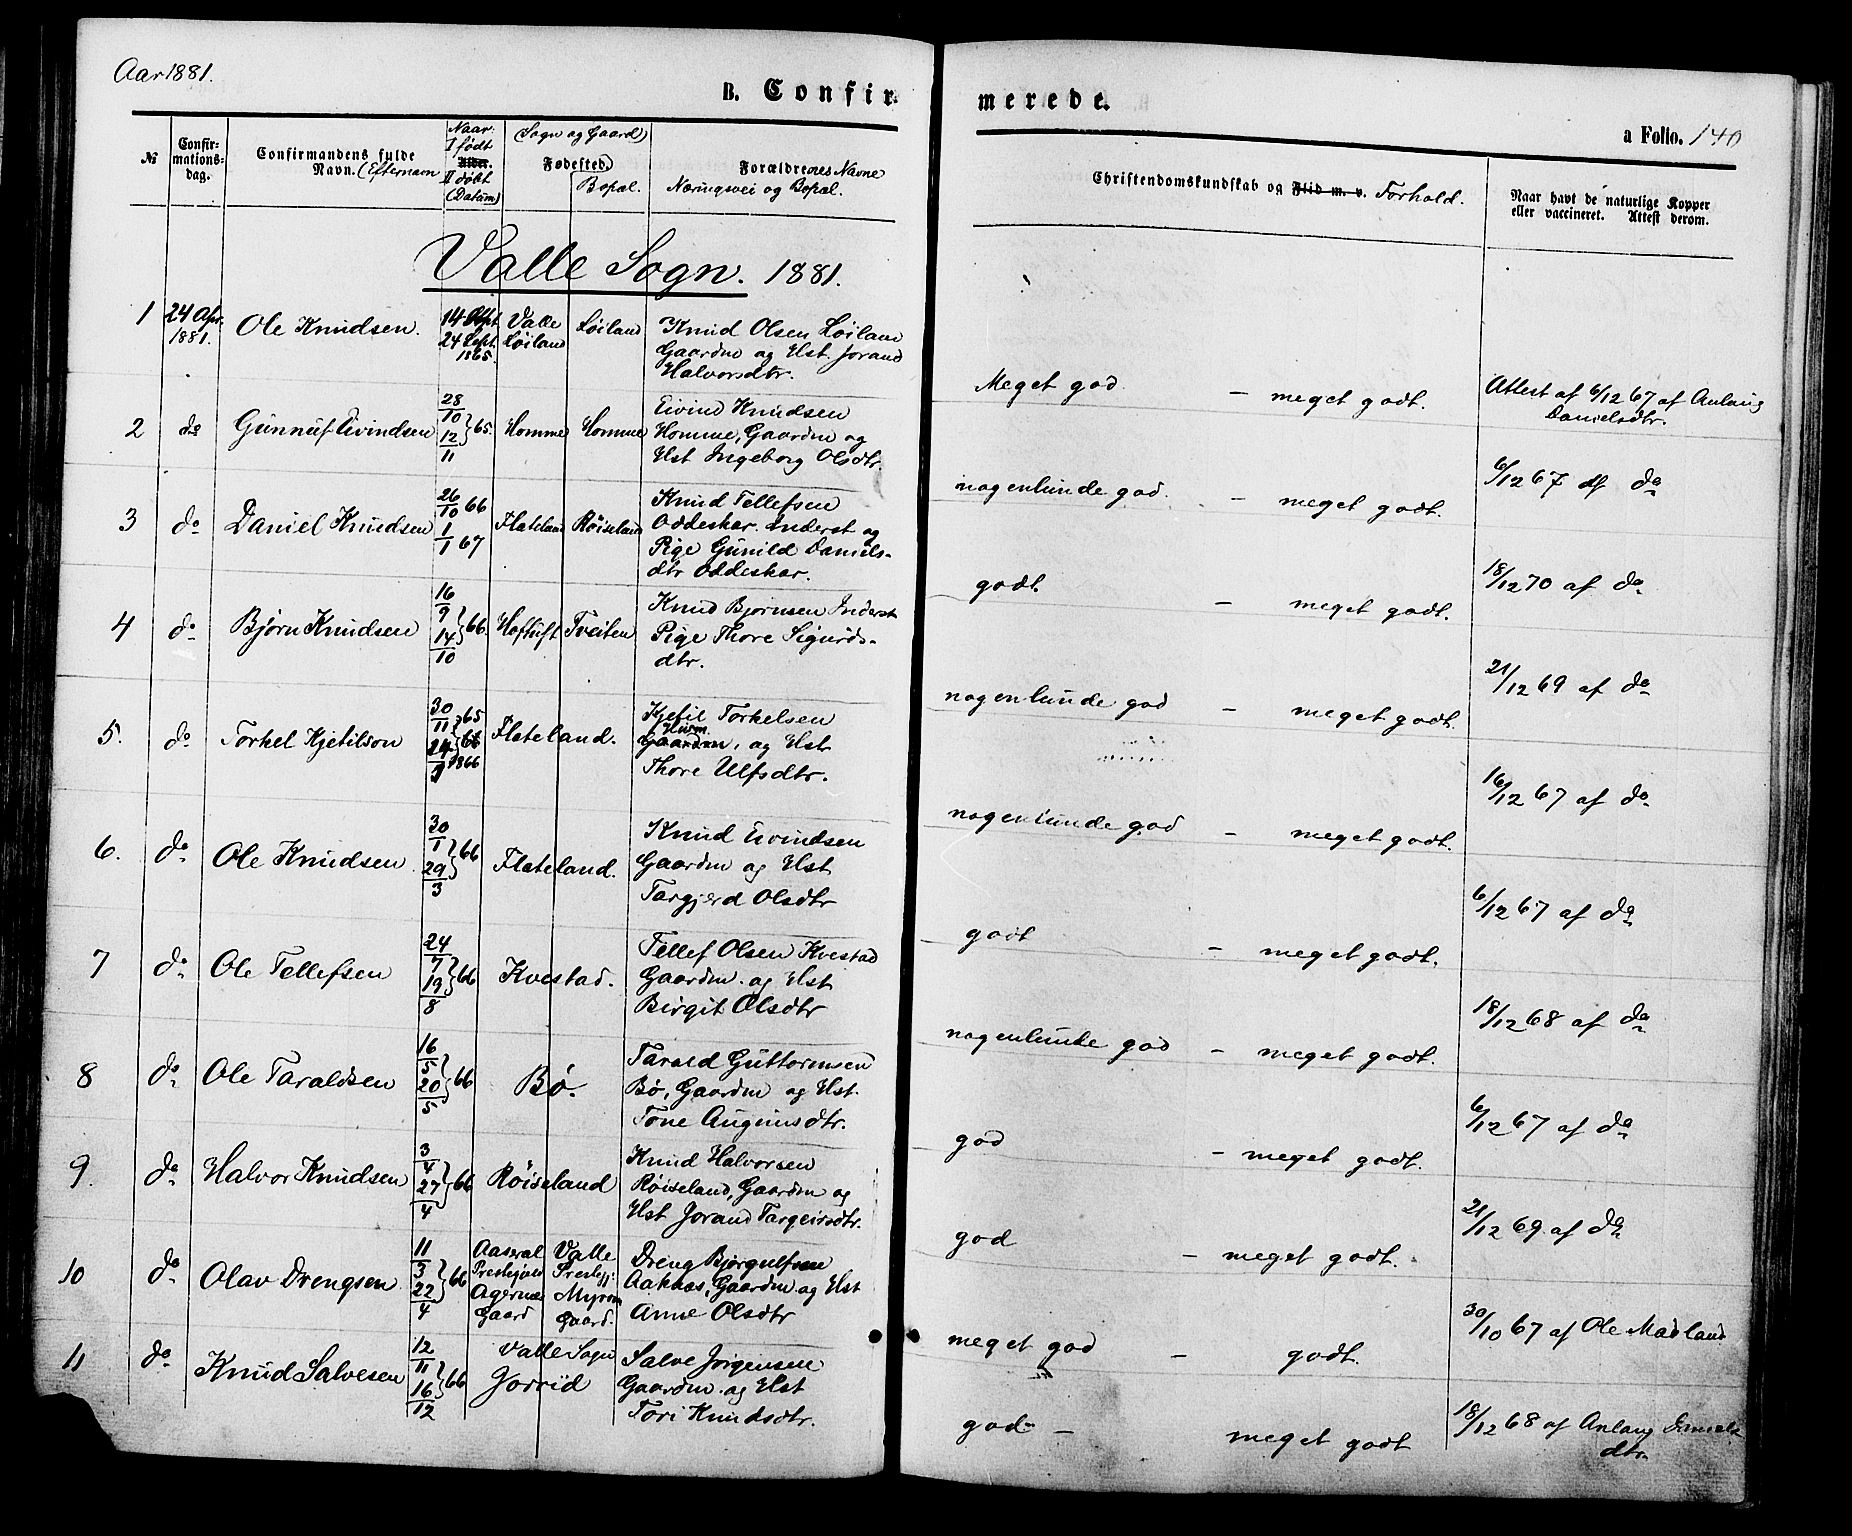 Aar 1881.
B. Confirmerede.
a Folio. 140
№
Confirmations-dag.
Confirmandens fulde Navn. (Efternavn
Naar I født Alder. II døbt (Datum)
(Sogn og Gaard)
Fødested.)
Bopæl.
Forældrenes Navne
Næringsvei og Bopæl.
Christendomskundskab og Flid m. v. Forhold.
Naar havt de naturlige Kopper
eller vaccineret. Attest derom.
Valle Sogn. 1881.
1 24 Apr. 1881. Ole Knudsen. 14 Sept 24 Sept. 1865. Valle Løiland Løiland
Knud Olsen Løilan
Gaardm og Hst. Jorand
Halvorsdtr.
Meget god. – meget godt. Attest af 6/12 67 af Anlaug
Danielsdtr.
2 do Gunnuf Eivindsen 28/10 12/11 65. Homme Homme
Eivind Knudsen
Homme, Gaardm og
Hst Ingeborg Olsdtr.
nogenlunde god. – meget godt. 6/12 67 af do
3 do Daniel Knudsen 26/10 66 1/1 67 Flateland Røiseland
Knud Tellefsen
Oddeskar. Inderst og
Pige Gunild Daniels-
dtr Oddeskar.
godt. – meget godt. 18/12 70 af do
4 do Bjørn Knudsen 16/9 14/10 66. Hoftuft Tveiten
Knud Bjørnsen Inderst
Pige Thore Sigurds-
dtr.
nogenlunde god – meget godt. 21/12 69 af do
5. do Torkel Kjetilson 30/11 65 66 1866 Flateland.
Kjetil Torkelsen
Husm.
Gaardm, og Hst
Thore Ulfsdtr.
nogenlunde god – meget godt. 16/12 67 af do
6. do Ole Knudsen 30/1 29/3 66 Flateland.
Knud Eivindsen
Gaardm og Hst
Targjerd Olsdtr
godt – meget godt. 6/12 67 af do
7 do Ole Tellefsen 24/7 19/8 66 Kvestad.
Tellef Olsen Kvestad
Gaardm. og Hst
Birgit Olsdtr
nogenlunde god – meget godt. 18/12 68 af do
8 do Ole Taraldsen 16/5 20/5 66 Bø.
Tarald Guttormsen
Bø, Gaardm og Hst.
Tone Augunsdtr.
god – meget godt. 6/12 67 af do
9. do Halvor Knudsen 3/4 27/4 66 Røiseland
Knud Halvorsen
Røiseland, Gaardm og
Hst Jorand Targeirsdtr.
god – meget godt. 21/12 69 af do
10 do Olav Drengsen 11/3 22/4 66 Aaseral Prestegjeld Agernæs Gaard Valle Prestegj: Gaard.
Dreng Bjørgulfsen
Aaknæs, Gaardm og Hst
Anne Olsdtr
meget god – godt. 30/10 67 af Ole Madland
11 do Knud Salvesen 12/11 16/12 66 Valle Sogn Jorrid
Salve Jørgensen
Gaardm. og Hst
Tori Knudsdtr.
god – meget godt 18/12 68 af Anlaug Daniels
dtr.